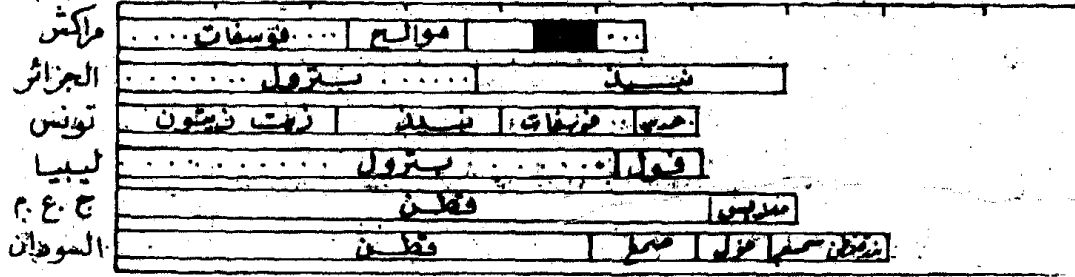 مراكش فوسفات موالح
الجزائر بترول نبيذ
تونس زيت زيتون نبيذ فوسفات
ليبيا بترول فول
ج.ع.م قطن ملابس
السودان قطن صمغ بذرة قطن سمسم